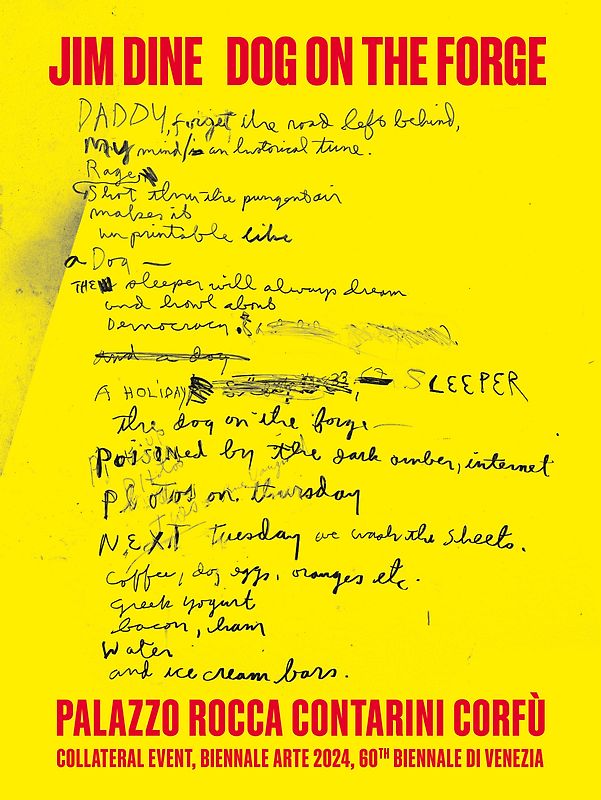 JIM DINE DOG ON THE FORGE
DADDY, forget the road left behind,
my mind is an historical tune.
Rage
Shot thru the pungent air
makes it
unprintable like
a Dog —
THE sleeper will always dream
and howl about
Democracy.
and a dog
A HOLIDAY, SLEEPER
the dog on the forge —
POISONED by the dark amber, internet
Photos on thursday
NEXT tuesday we wash the sheets.
coffee, dog eggs, oranges etc.
Greek yogurt
bacon, ham
Water
and ice cream bars.
PALAZZO ROCCA CONTARINI CORFÙ
COLLATERAL EVENT, BIENNALE ARTE 2024, 60TH BIENNALE DI VENEZIA